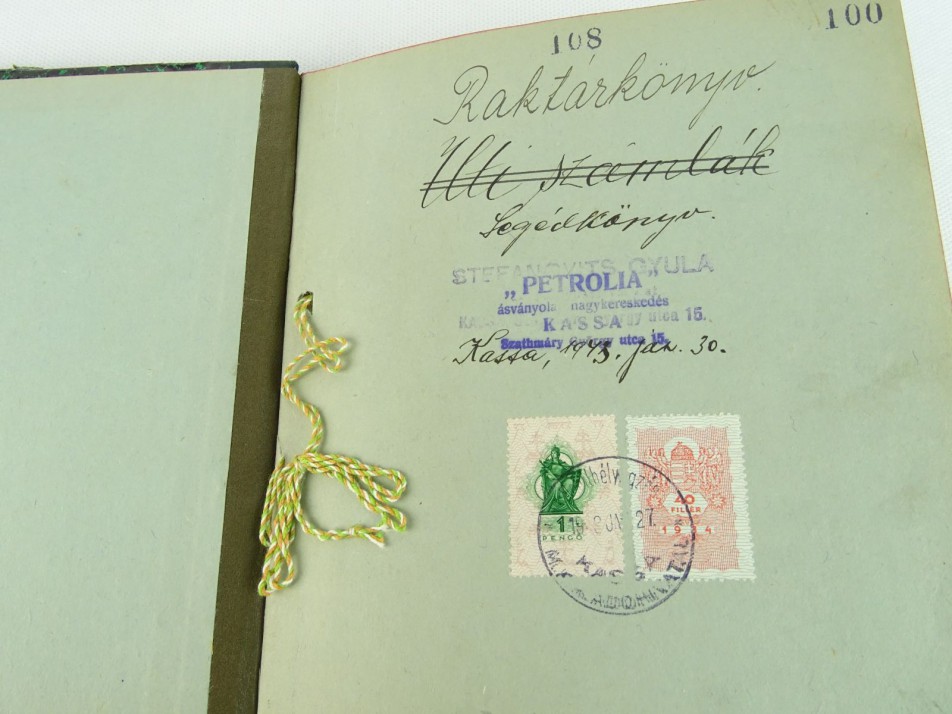 108
100
Raktárkönyv.
számlák
Segédkönyv.
STEFANOVITS GYULA
„PETROLIA"
ásványola nagykereskedés
KASSA
utca 15.
Szathmáry György utca 15.
Kassa, 1943. jan. 30.
1
PENGŐ
40
FILLÉR
27.
KASSA